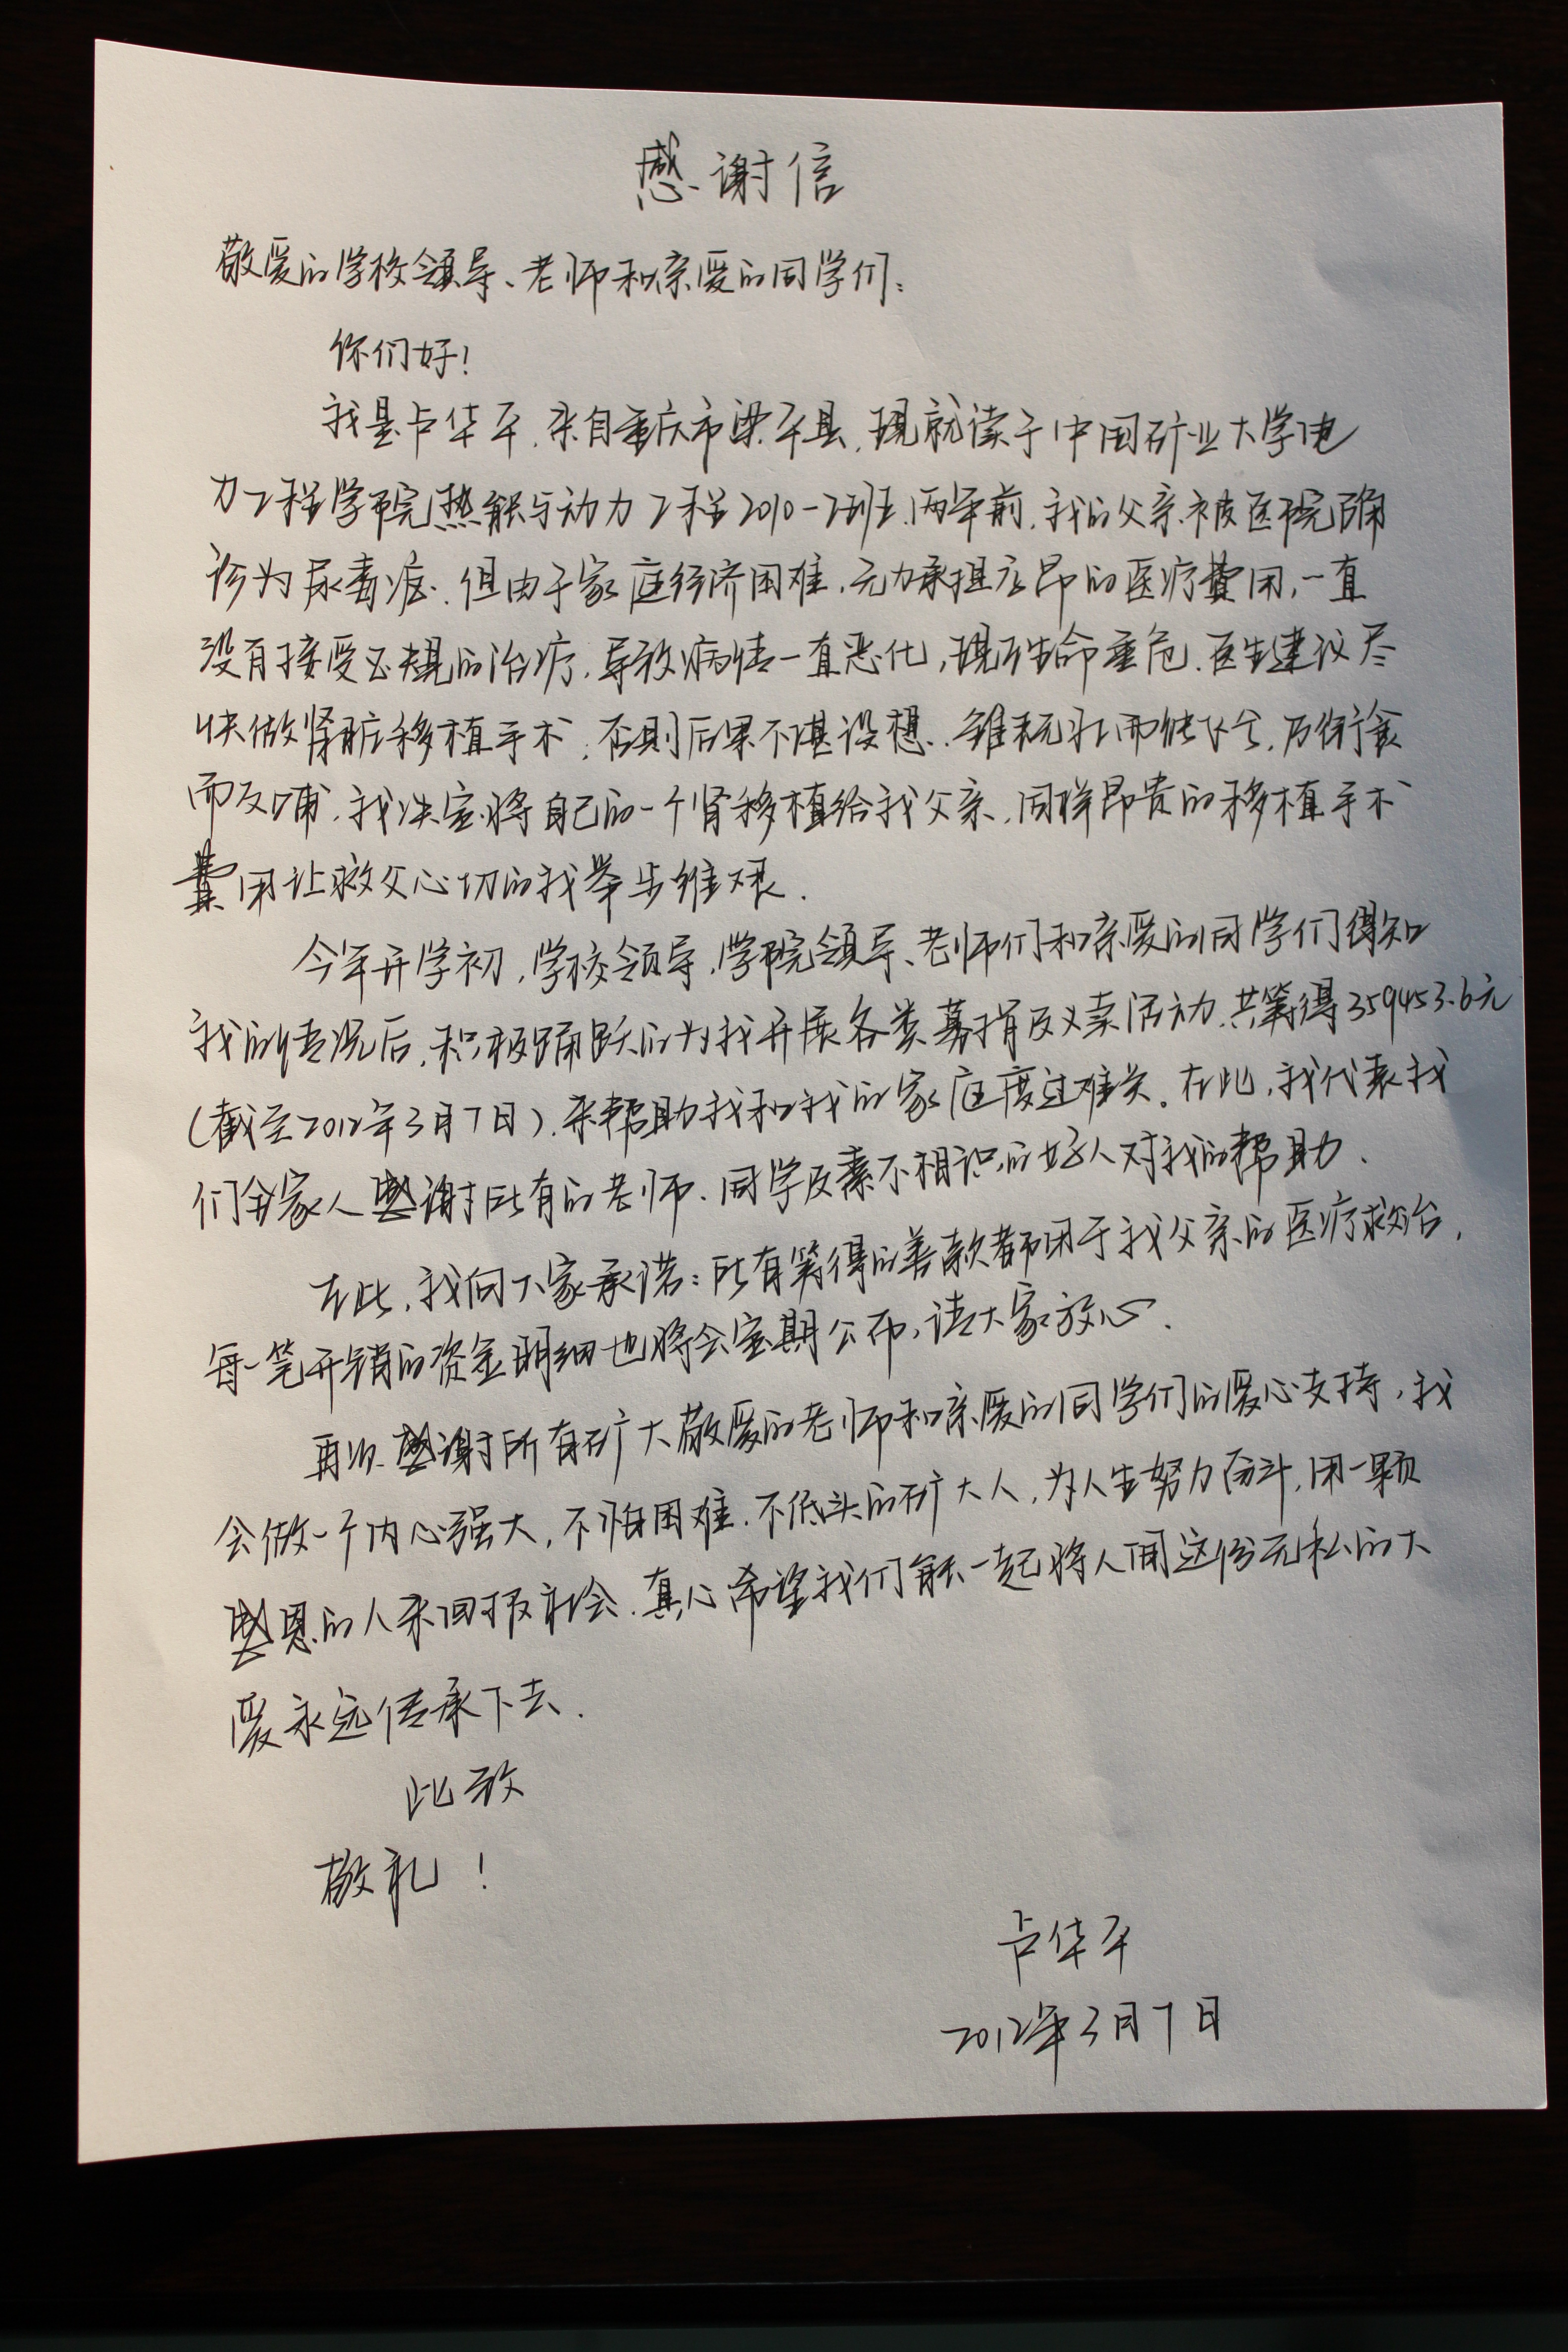 感谢信
敬爱的学校领导、老师和亲爱的同学们：
你们好！
我是卢华平，来自重庆市梁平县，现就读于中国矿业大学电
力工程学院热能与动力工程2010-2班.两年前，我的父亲被医院确
诊为尿毒症.但由于家庭经济困难，无力承担高昂的医疗费用，一直
没有接受正规的治疗，导致病情一直恶化，现生命垂危.医生建议尽
快做肾脏移植手术，否则后果不堪设想.
而反哺，我决定将自己的一个肾移植给我父亲，同样昂贵的移植手术
费用让救父心切的我举步维艰.
今年开学初，学校领导，学院领导、老师们和亲爱的同学们得知
我的情况后，积极踊跃的为我开展各类募捐及义卖活动，共筹得359453.6元
(截至2012年3月7日)，来帮助我和我的家庭度过难关。在此，我代表我
们全家人感谢所有的老师、同学及素不相识的好人对我的帮助.
在此，我向大家承诺：所有筹得的善款都用于我父亲的医疗救治，
每一笔开销的资金明细也将会定期公布，请大家放心.
再次感谢所有矿大敬爱的老师和亲爱的同学们的爱心支持，我
会做一个内心强大，不怕困难，不低头的矿大人，为人生努力奋斗，用一颗
感恩的人来回报社会.真心希望我们能一起将人间这份无私的大
爱永远传承下去.
此致
敬礼！
卢华平
2012年3月7日